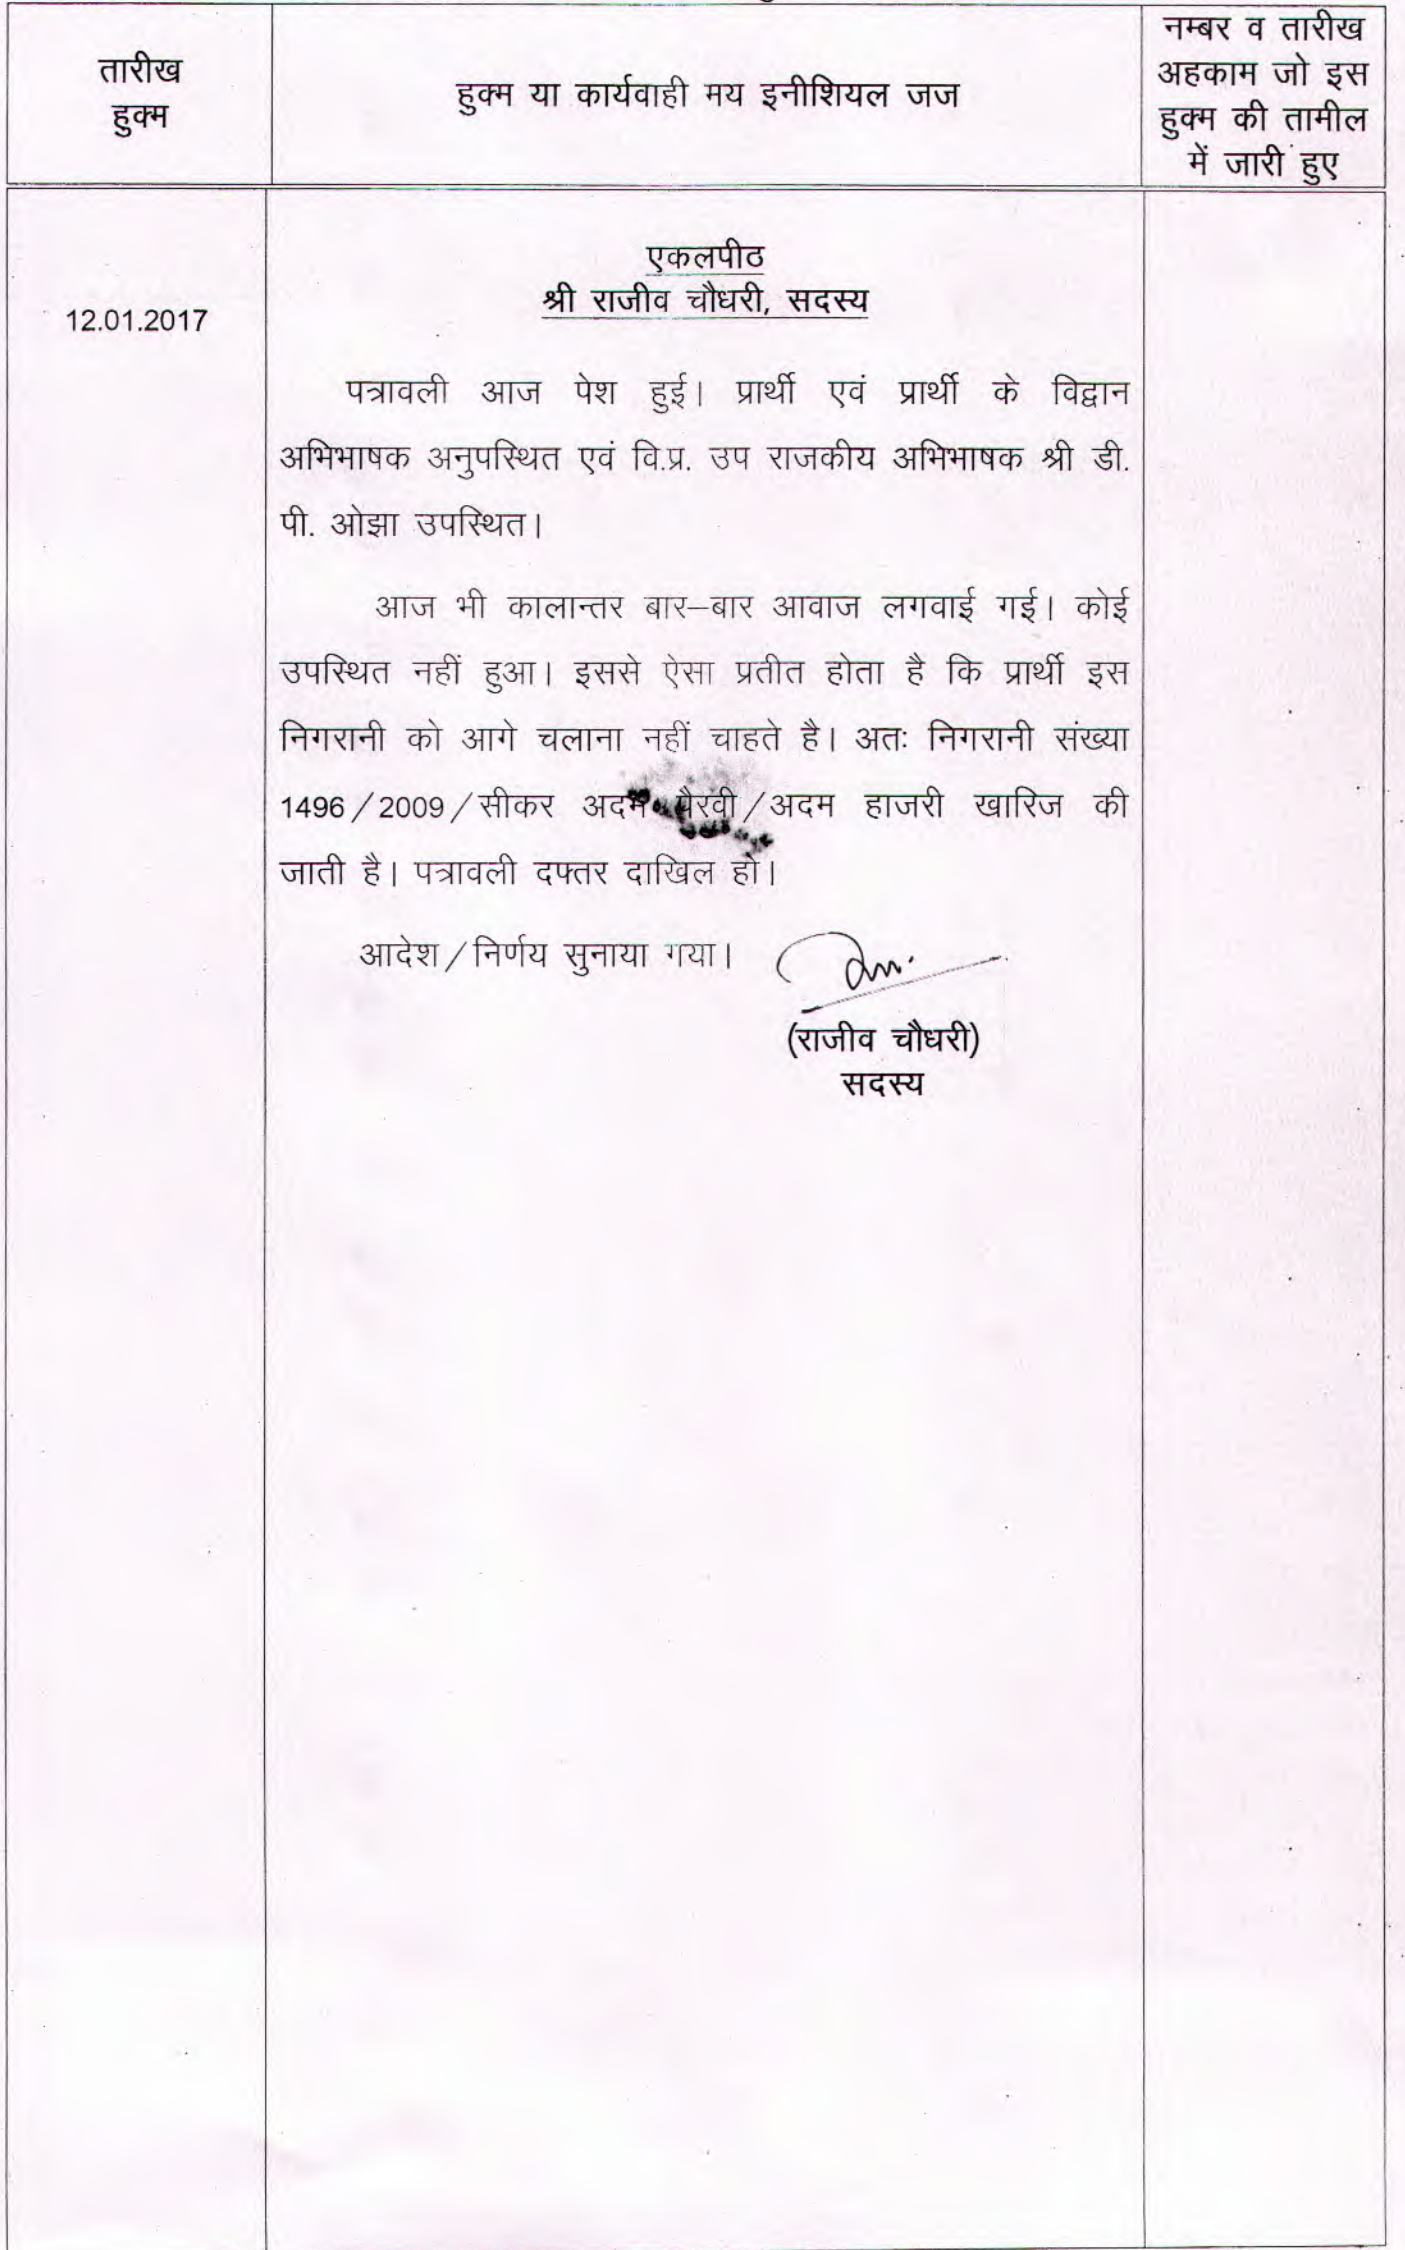 तारीख
हुक्म
हुक्म या कार्यवाही मय इनीशियल जज
नम्बर व तारीख
अहकाम जो इस
हुक्म की तामील
में जारी हुए
12.01.2017
एकलपीठ
श्री राजीव चौधरी, सदस्य
पत्रावली आज पेश हुई। प्रार्थी एवं प्रार्थी के विद्वान
अभिभाषक अनुपस्थित एवं वि.प्र. उप राजकीय अभिभाषक श्री डी.
पी. ओझा उपस्थित।
आज भी कालान्तर बार–बार आवाज लगवाई गई। कोई
उपस्थित नहीं हुआ। इससे ऐसा प्रतीत होता है कि प्रार्थी इस
निगरानी को आगे चलाना नहीं चाहते है। अतः निगरानी संख्या
1496/2009/सीकर अदम पैरवी/अदम हाजरी खारिज की
जाती है। पत्रावली दफ्तर दाखिल हो।
आदेश/निर्णय सुनाया गया।
(राजीव चौधरी)
सदस्य